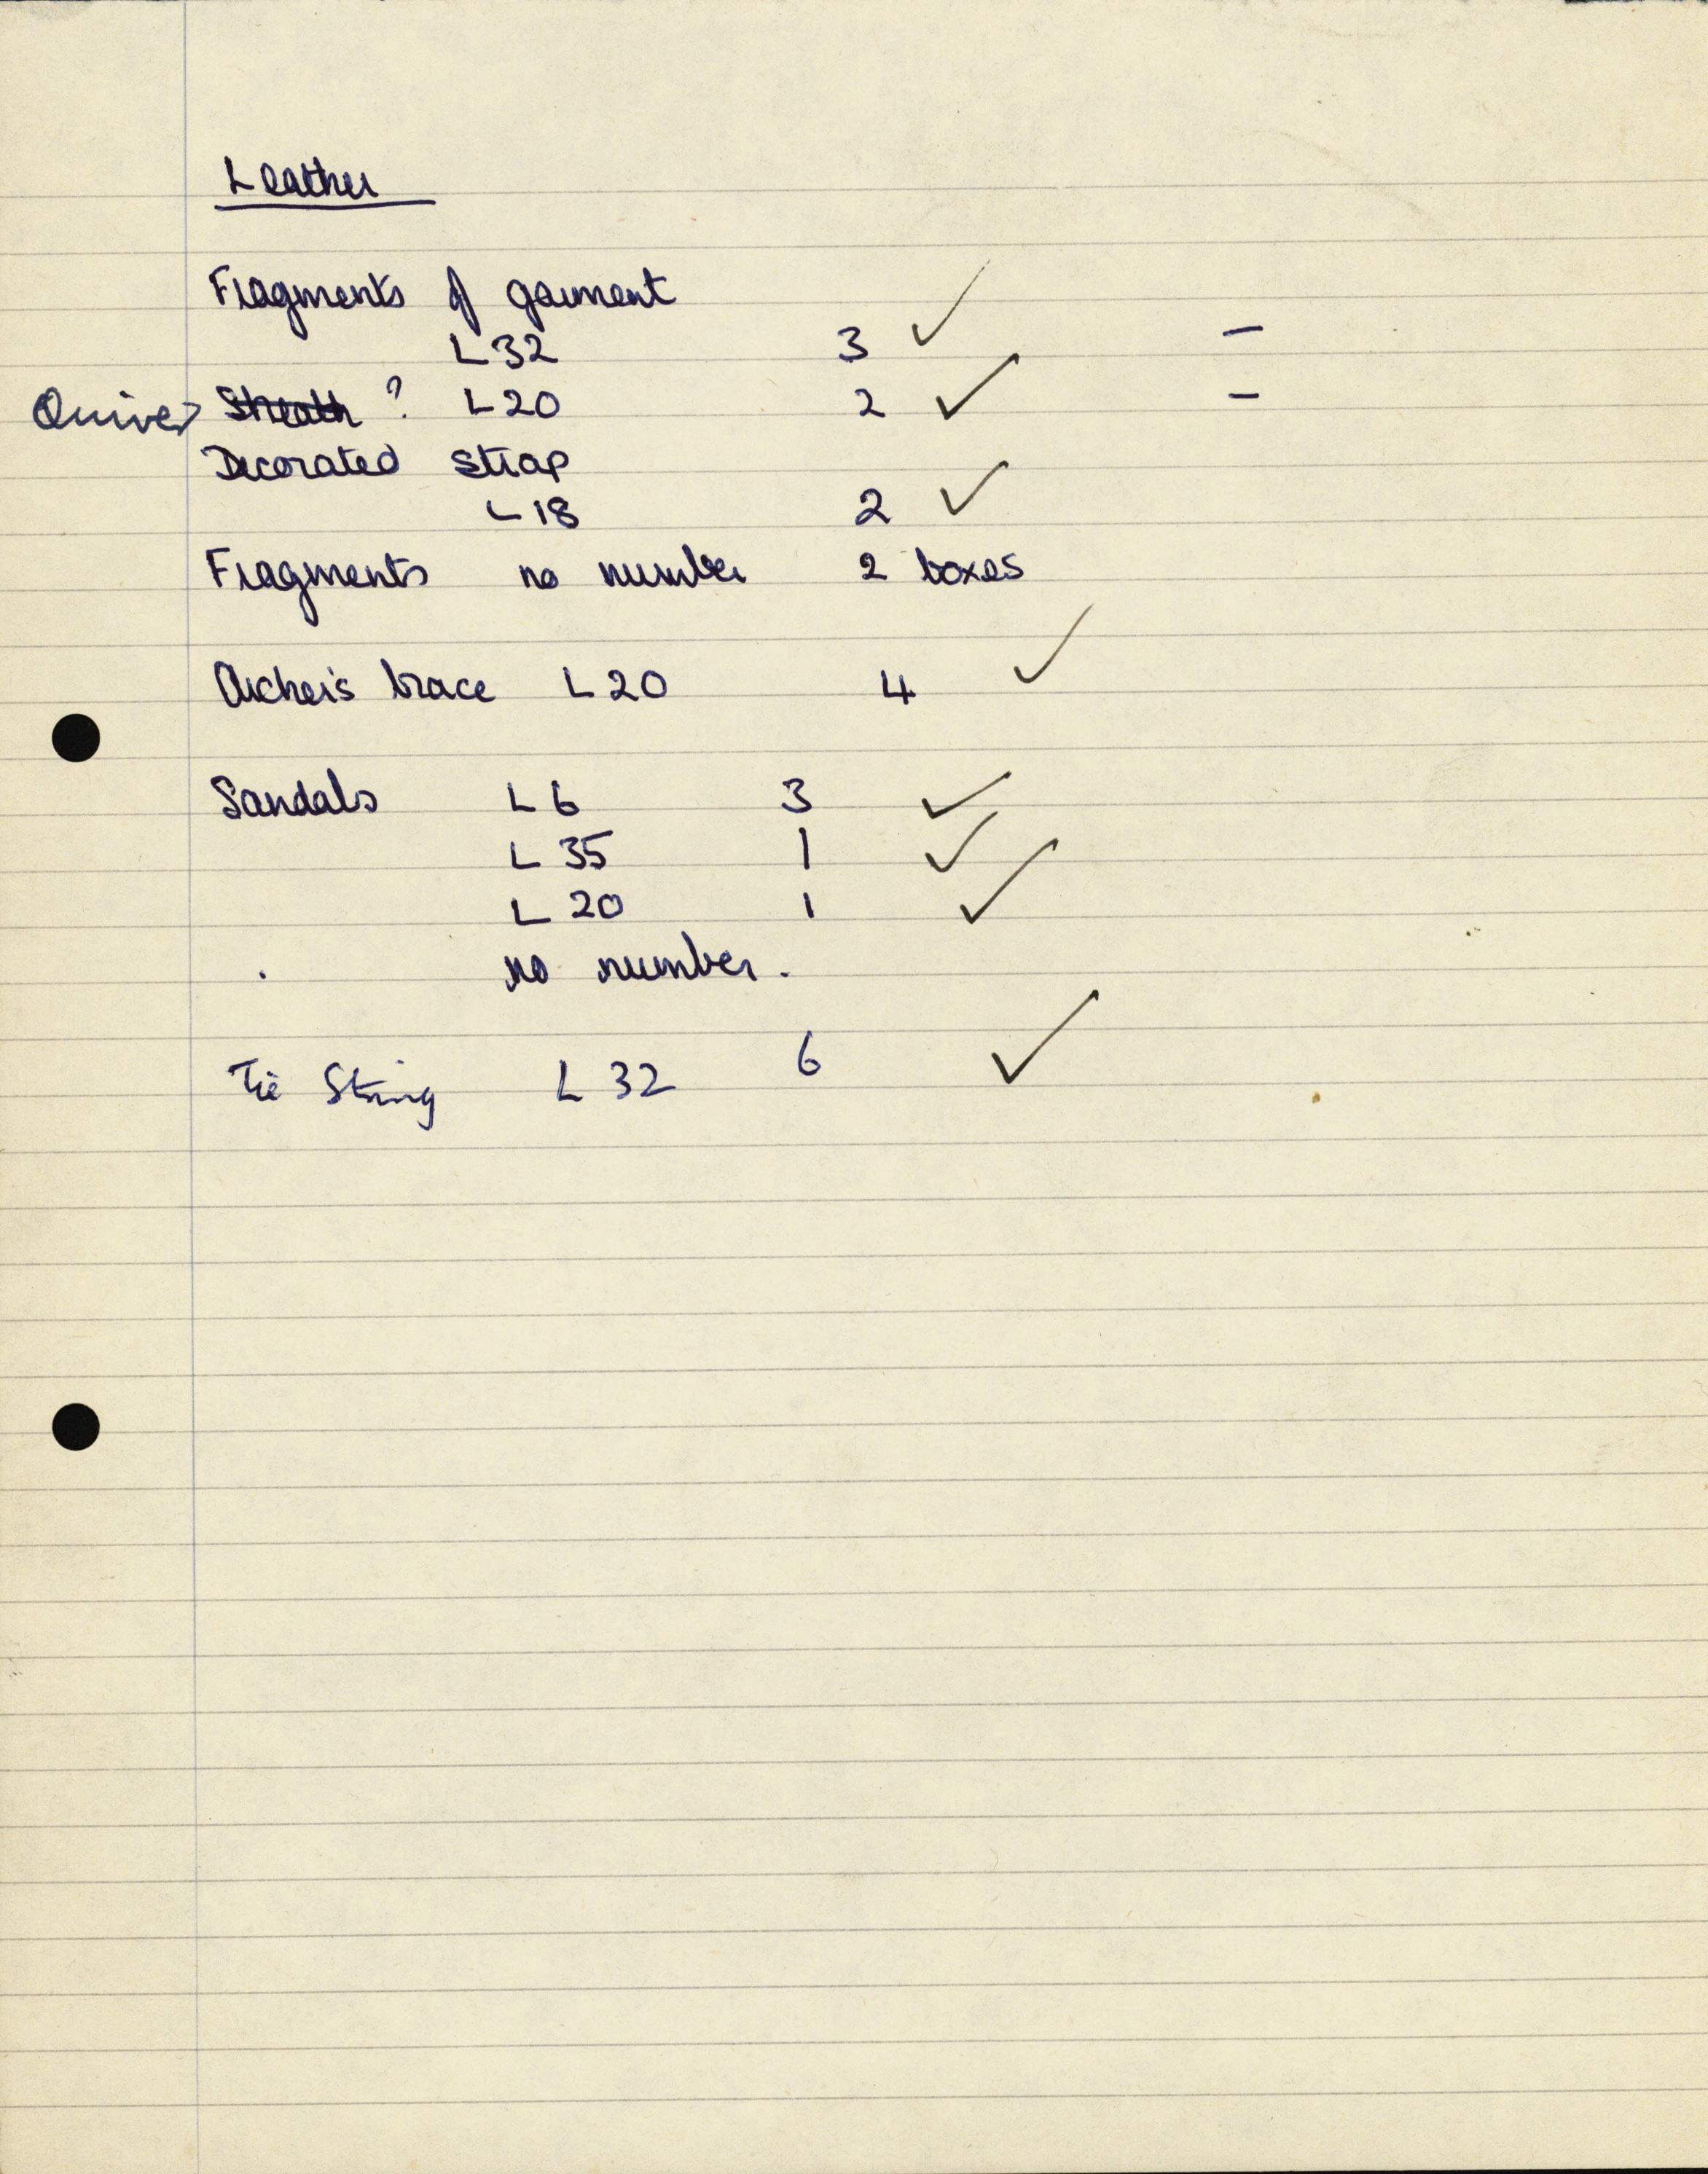 Leather
Fragments of garment
L 32 3 ✓ –
Quiver Sheath ? L 20 2 ✓ –
Decorated strap
L 18 2 ✓
Fragments no number 2 boxes
Archer's brace L 20 4 ✓
Sandals L 6 3 ✓
L 35 1 ✓
L 20 1 ✓
no number.
Tie String L 32 6 ✓